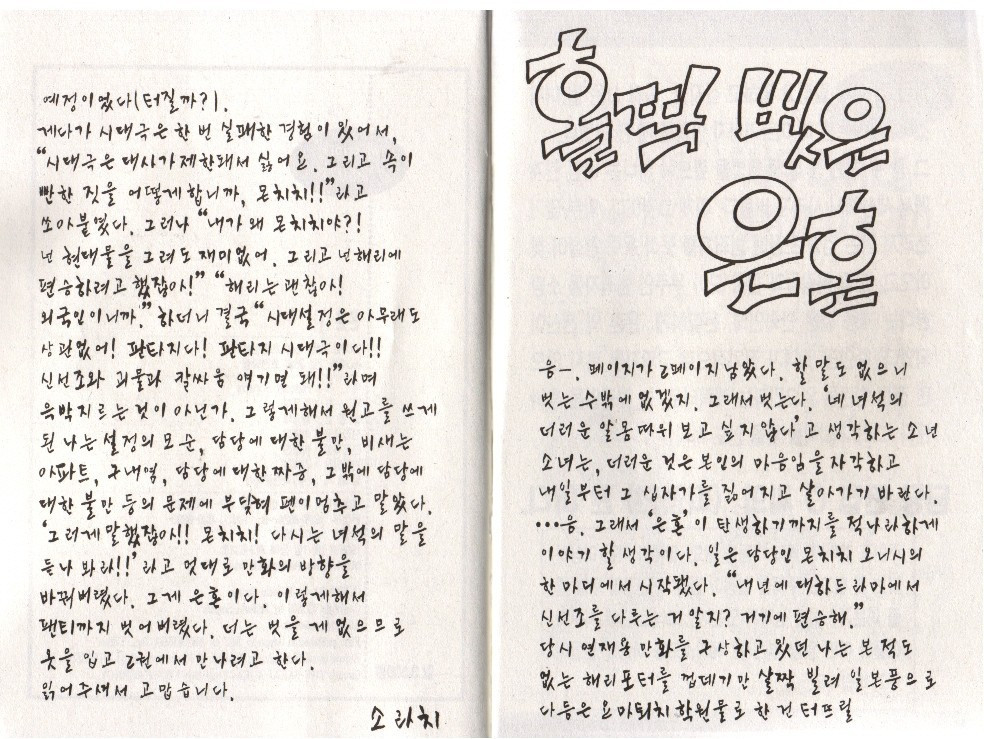 홀딱 벗은
은혼
음-. 페이지가 2페이지 남았다. 할 말도 없으니
벗는 수밖에 없겠지. 그래서 벗는다. '네 녀석의
더러운 알몸따위 보고 싶지 않다'고 생각하는 소년
소녀는, 더러운 것은 본인의 마음임을 자각하고
내일부터 그 십자가를 짊어지고 살아가기 바란다.
…음. 그래서 '은혼'이 탄생하기까지를 적나라하게
이야기 할 생각이다. 일은 담당인 몬치치 오니시의
한 마디에서 시작됐다. "내년에 대하드라마에서
신선조를 다루는 거 알지? 거기에 편승해."
당시 연재용 만화를 구상하고 있던 나는 본 적도
없는 해리포터를 껍데기만 살짝 빌려 일본풍으로
다듬은 요마퇴치 학원물로 한 건 터뜨릴
예정이었다(터질까?).
게다가 시대극은 한 번 실패한 경험이 있어서,
"시대극은 대사가 제한돼서 싫어요. 그리고 속이
빤한 짓을 어떻게 합니까, 몬치치!!"라고
쏘아붙였다. 그러나 "내가 왜 몬치치야?!
넌 현대물을 그려도 재미없어. 그리고 넌 해리에
편승하려고 했잖아!" "해리는 괜찮아!
외국인이니까." 하더니 결국 "시대설정은 아무래도
상관없어! 판타지다! 판타지 시대극이다!!
신선조와 괴물과 칼싸움 얘기면 돼!!"라며
윽박지르는 것이 아닌가. 그렇게 해서 원고를 쓰게
된 나는 설정의 모순, 담당에 대한 불만, 비새는
아파트, 구내염, 담당에 대한 짜증, 그밖에 담당에
대한 불만 등의 문제에 부딪혀 펜이 멈추고 말았다.
'그러게 말했잖아!! 몬치치! 다시는 녀석의 말을
듣나 봐라!!' 라고 멋대로 만화의 방향을
바꿔버렸다. 그게 은혼이다. 이렇게 해서
팬티까지 벗어버렸다. 더는 벗을 게 없으므로
옷을 입고 2권에서 만나려고 한다.
읽어주셔서 고맙습니다.
소라치